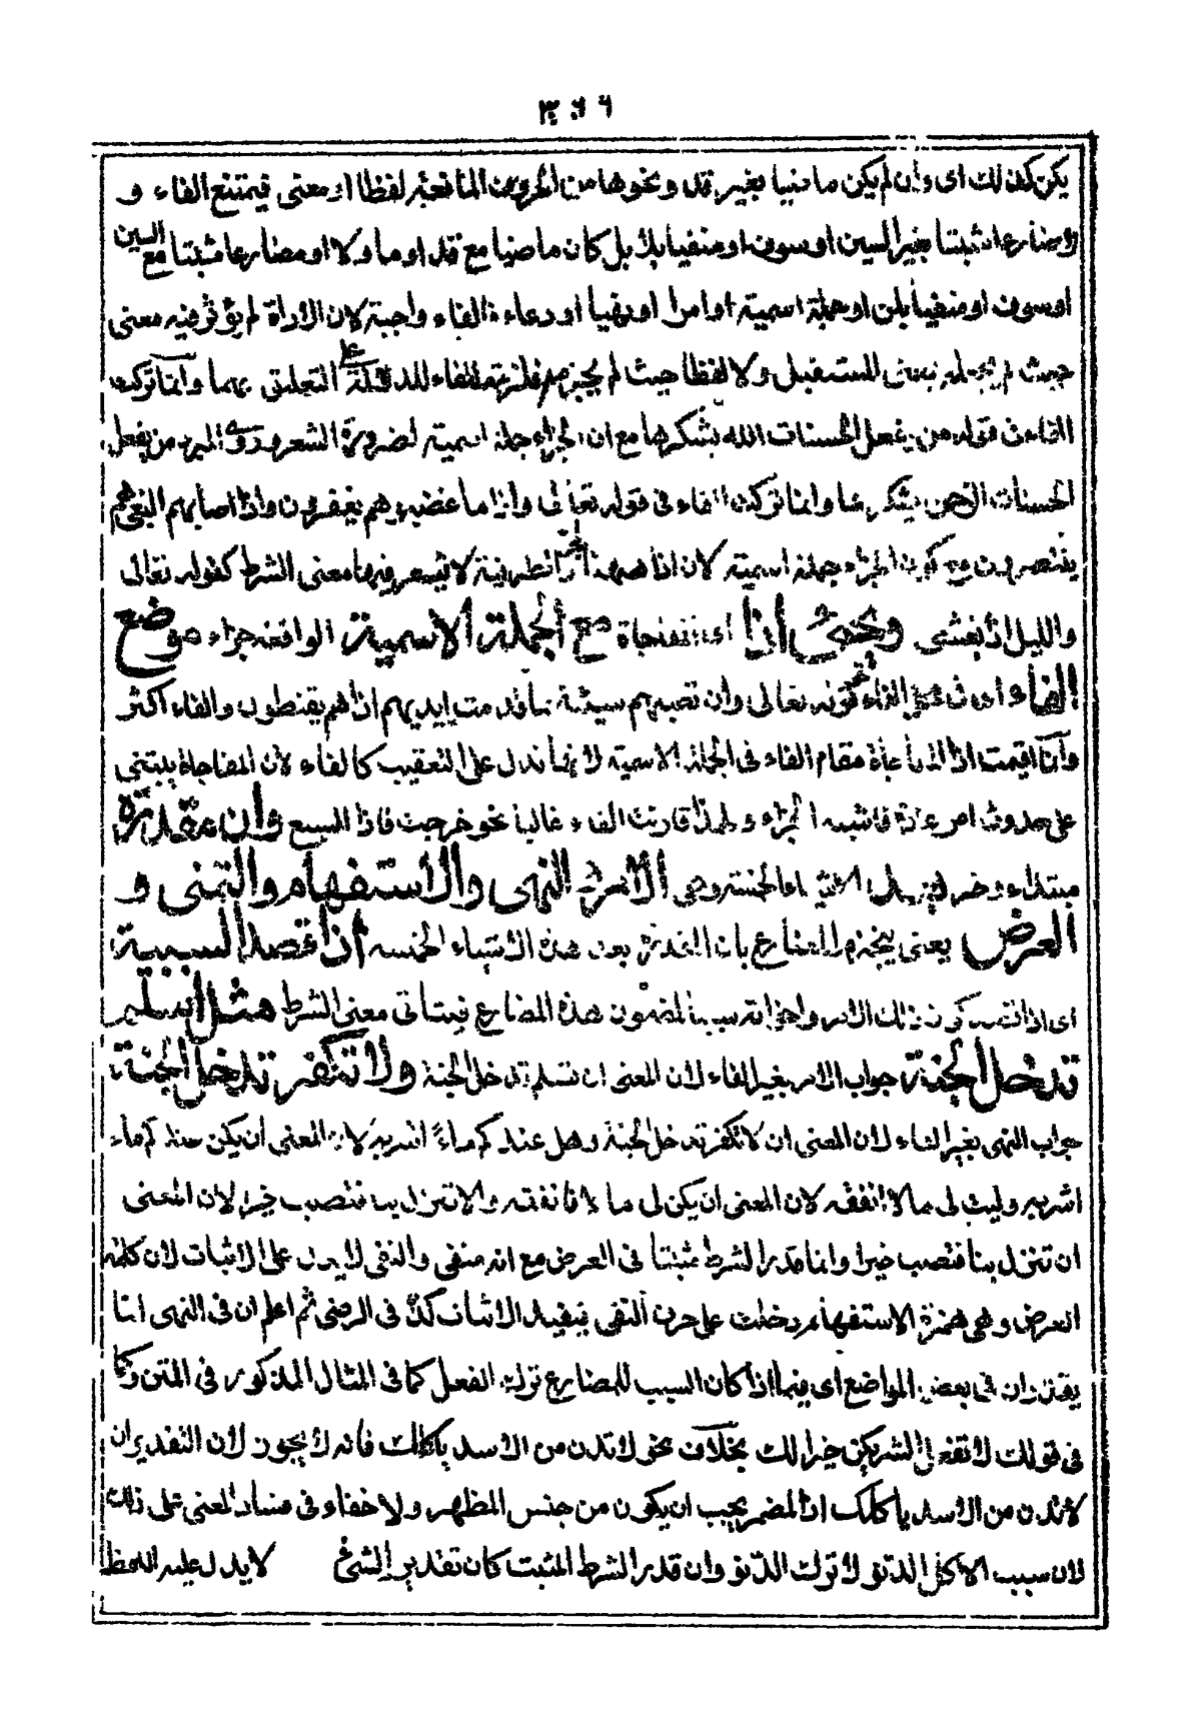 ٣٠٦
يكن كذلك اى وان لم يكن ماضيا بغير قد ونحوها من الحروف المانعة لفظا او معنى فيمتنع الفاء و
مضارعا مثبتا بغير السين او سوف او منفيا بلا بل كان ماضيا مع قد او ما ولا او مضارعا مثبتا مع السين
او سوف او منفيا بلن او جملة اسمية او امرا او نهيا او دعاء فالفاء واجبة لان الاداة لم يؤثر فيه معنى
حيث لم يجعله بمعنى المستقبل ولا لفظا حيث لم يجزم فلزمه الفاء للدلالة على التعليق بهما وانما تركت
الفاء فى قوله من يفعل الحسنات الله يشكرها مع ان الجزاء جملة اسمية لضرورة الشعر وروى المبرد من يفعل
الحسنات الرحمن يشكرها وانما تركت الفاء فى قوله تعالى واذا ما غضبوا هم يغفرون واذا اصابهم البغى هم
ينتصرون مع كون الجزاء جملة اسمية لان اذا ههنا ظرفية لا شعر فيها معنى الشرط كقوله تعالى
والليل اذا يغشى ويجئ اذا اى المفاجاة مع الجملة الاسمية الواقعة جزاء موضع
الفاء اى فى الفاء كقوله تعالى وان تصبهم سيئة بما قدمت ايديهم اذا هم يقنطون والفاء اكثر
وانما اقيمت اذا المفاجاة مقام الفاء فى الجملة الاسمية لانها تدل على التعقيب كالفاء لان المفاجاة يبتنى
على حدوث امر عادة فاشبه الجزاء ولهذا قارنت الفاء غالبا نحو خرجت فاذا السبع وان مقدرة
مبتداء وخبر الاشياء الخمسة وهى الامر والنهى والاستفهام والتمنى و
العرض يعنى ينجزم المضارع بان المقدرة بعد هذه الاشياء الخمسة اذا قصد السببية
اى اذا قصد كون ذلك الامر واخواته سببا لمضمون هذه المضارع فيتاتى معنى الشرط مثل اسلم
تدخل الجنة جواب الامر بغير الفاء لان المعنى ان تسلم تدخل الجنة ولا تكفر تدخل الجنة
جواب النهى بغير الفاء لان المعنى ان لا تكفر تدخل الجنة وهل عندكم ماء اشربه لان المعنى ان يكن عندكم ماء
اشربه وليت لى مالا انفقه لان المعنى ان يكن لى مالا فانفقه والا تنزل بنا فتصب خيرا لان المعنى
ان تنزل بنا فتصب خيرا وانما قدر الشرط مثبتا فى العرض مع انه منفى والنفى لا يدل على الاثبات لان كلمة
العرض وهى همزة الاستفهام دخلت على حرف النفى فيفيد الاثبات كذا فى الرضى ثم اعلم ان فى النهى انما
يقدر ان فى بعض المواضع اى فيما اذا كان السبب للمضارع ترك الفعل كما فى المثال المذكور فى المتن وكما
فى قولك لا تفعل الشر يكن خيرا لك بخلاف نحو لا تدن من الاسد ياكلك فانه لا يجوز لان التقدير ان
لا تدن من الاسد ياكلك اذ المضمر يجب ان يكون من جنس المظهر ولا خفاء فى فساد المعنى على ذلك
لان سبب الاكل الدنو لا ترك الدنو وان قدر الشرط المثبت كان تقدير الشئ لا يدل عليه اللفظ